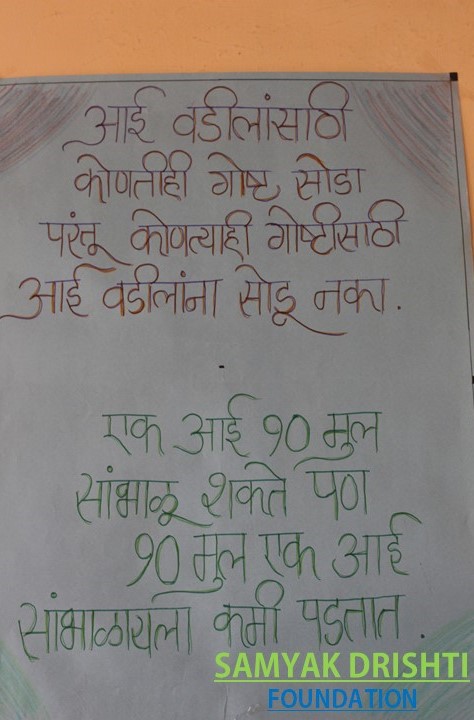 आई वडीलांसाठी
कोणतीही गोष्ट सोडा
परंतू कोणत्याही गोष्टीसाठी
आई वडीलांना सोडू नका.
एक आई १० मुल
सांभाळू शकते पण
१० मुल एक आई
सांभाळायला कमी पडतात.
SAMYAK DRISHTI
FOUNDATION